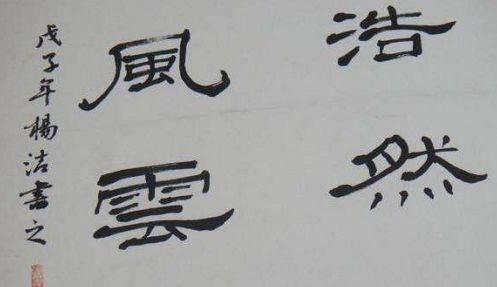 浩然
風雲
戊子年楊洁書之